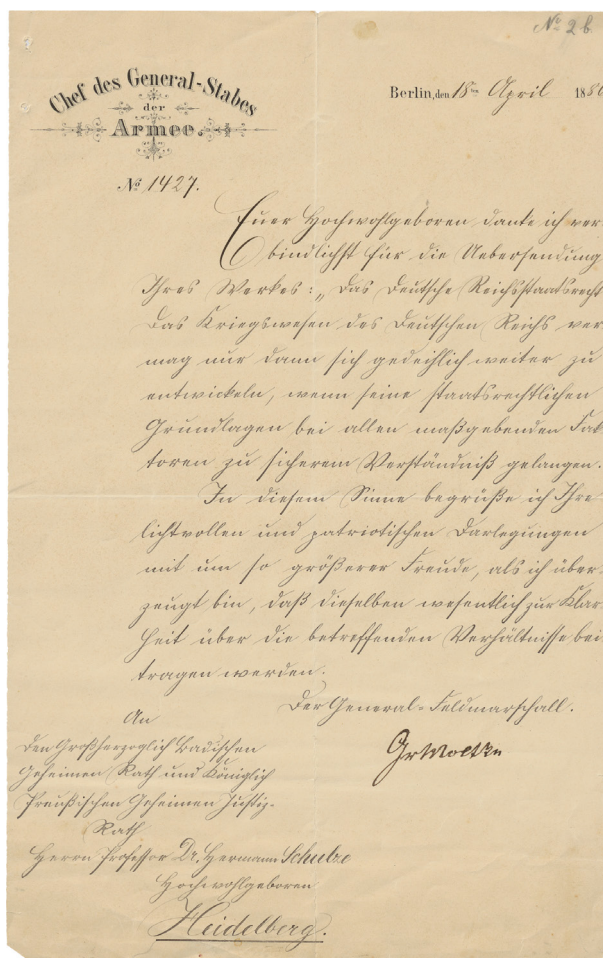 No 2 b.
Chef des General-Stabes
der
Armee.
Berlin, den 18ten April 188
No 1427.
Euer Hochwohlgeboren danke ich ver-
bindlichst für die Uebersendung
Ihres Werkes: „Das Deutsche Reichsstaatsrecht
Das Kriegswesen des Deutschen Reichs ver
mag nur dann sich gedeihlich weiter zu
entwickeln, wenn seine staatsrechtlichen
Grundlagen bei allen maßgebenden Fak
toren zu sicherem Verständniß gelangen.
In diesem Sinne begrüße ich Ihre
lichtvollen und patriotischen Darlegungen
mit um so größerer Freude, als ich über-
zeugt bin, daß dieselben wesentlich zur Klar
heit über die betreffenden Verhältnisse bei
tragen werden.
Der General-Feldmarschall.
Gr Moltke
An
den Großherzoglich Badischen
Geheimen Rath und Königlich
Preußischen Geheimen Justiz-
Rath
Herrn Professor Dr. Hermann Schulze
Hochwohlgeboren
Heidelberg.